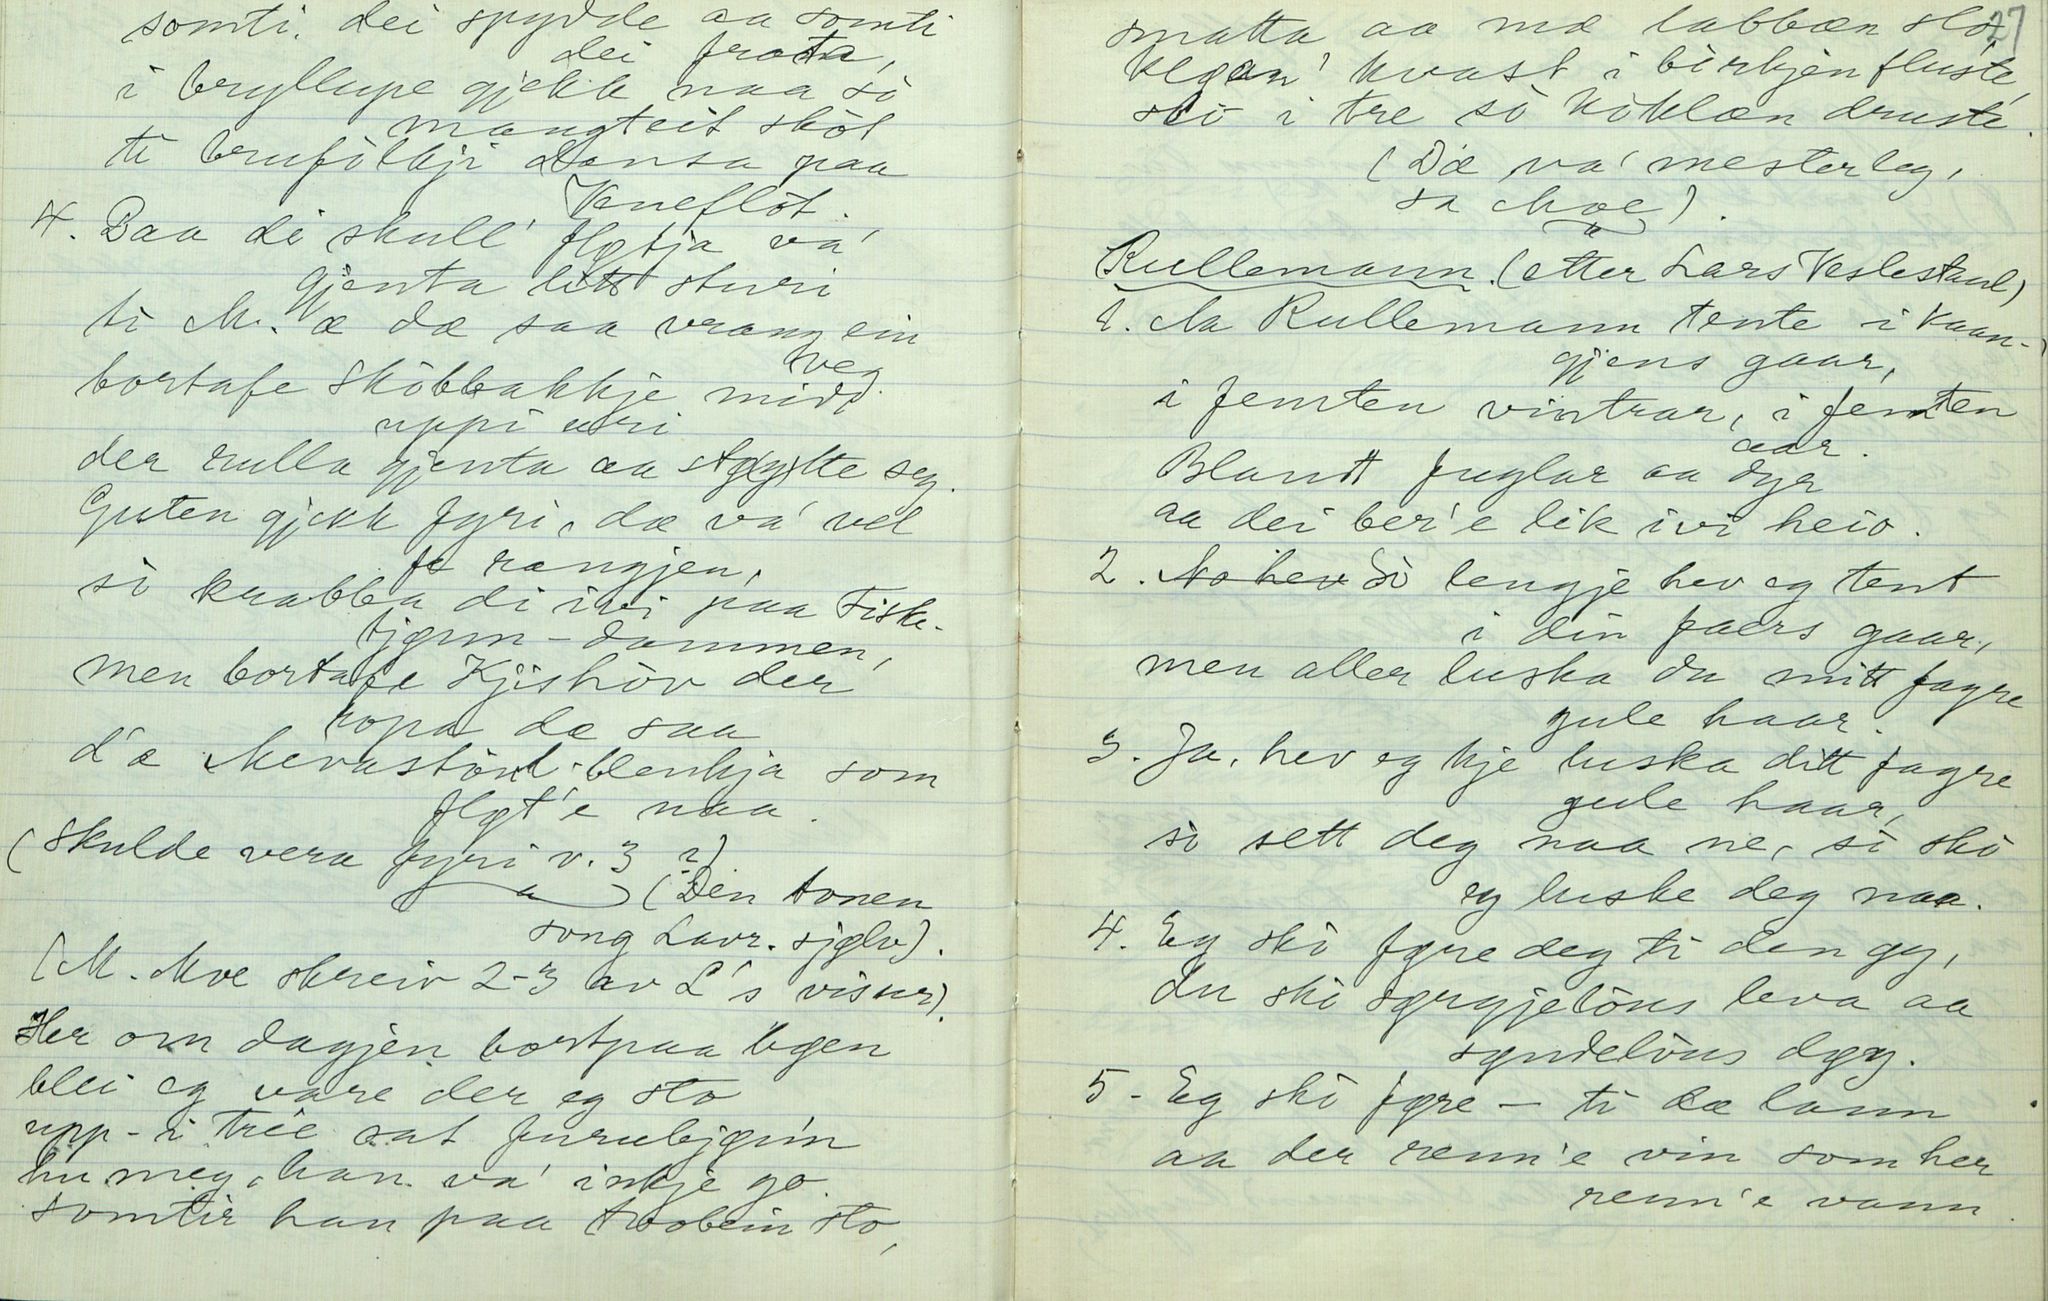 somti. dei spydde aa somti
dei frata,
i bryllupe gjekk naa so
mangteit skòt
ti brufòlkji dansa paa
Veneflòt.
4. Daa di skull' flytja va'
gjenta litt sturi
ti M. æ dæ saa vrang ein
veg
bortafe Skòbbakkje midt
uppi uri
der rulla gjenta aa støytte seg.
Guten gjekk fyri, dæ va' vel
fe rangjen,
sò krabba di ivi paa Fiske-
tjønn-dammen,
men bortafe Kjishòv der
ropa dæ saa
d'æ Mevastòvl-blenkja som
fløt'e naa.
(Skulde vera fyri v. 3 ?)
(Den tonen
song Lavr. sjølv).
(M. Moe skreiv 2-3 av L's visur).
Her om dagjen bortpaa Ugen
blei eg vare der eg sto
upp-i tree sat furubjønn
hu meg, han va' inkje go.
somtir han paa tvobein sto,
27
smatta aa mæ labbæn slo,
klòan' kvast i birkjen fluste,
slo i tre sò kòklæn druste.
(Dæ va' mesterleg,
sa Moe).
Rullemann. (etter Lars Veslestaul)
1. Aa Rullemann tente i Kaan-
gjens gaar,
i femten vintrar, i femten
aar.
Blandt fuglar aa dyr
aa dei ber'e lik ivi heio.
2. No hev Sò lengje hev eg tent
i din faers gaar,
men aller luska du mitt fagre
gule haar.
3. Ja, hev eg kje luska ditt fagre
gule haar,
sò sett deg naa ne, sò skò
eg luske deg naa.
4. Eg skò føre deg ti den øy,
du skò sørgjelòus leva aa
syndelòus døy.
5 - Eg skò føre — ti dæ lann
aa der renn'e vin som her
renn'e vann.